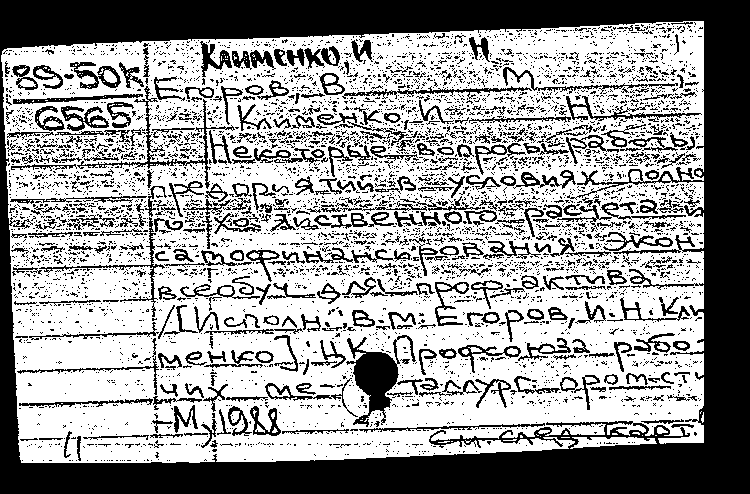 Клименко, И Н
89-50К
6565
Егоров, В М
Клименко, И Н
Некоторые вопросы работы
предприятий в условиях полно
го хозяйственного расчета и
самофинансирования: Экон.
всеобуч для проф. актива
/[Исполн.: В.М. Егоров, И.Н. Кли
менко]; ЦК Профсоюза рабо-
чих металлург. пром-сти
-М, 1988
см. след. карт.